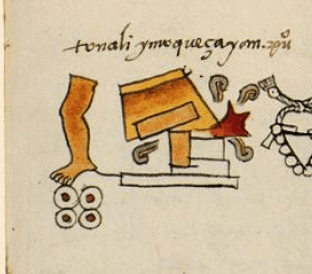 tonali ymoqueçayan. xpũ